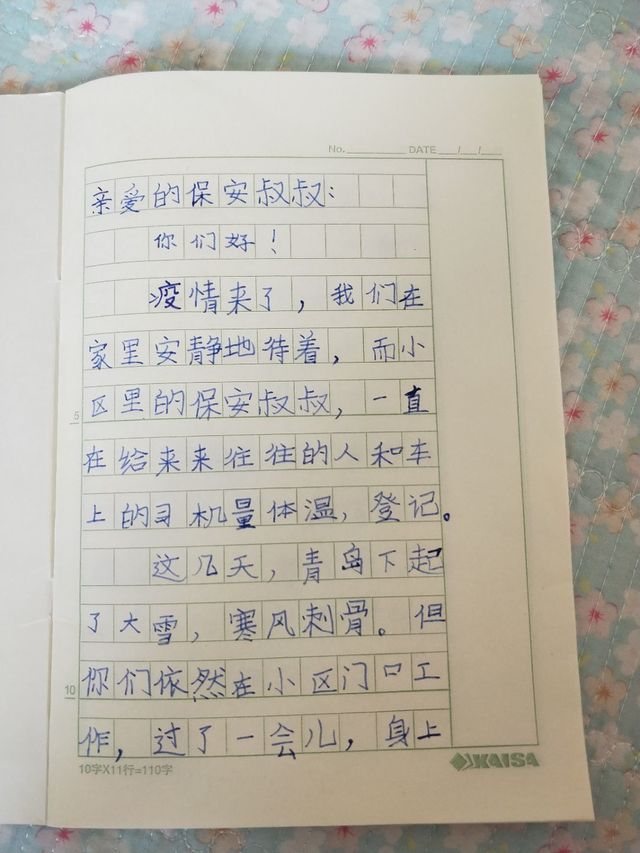 No. DATE / /
亲爱的保安叔叔：
你们好！
疫情来了，我们在
家里安静地待着，而小
区里的保安叔叔，一直
5
在给来来往往的人和车
上的司机量体温，登记。
这几天，青岛下起
了大雪，寒风刺骨。但
你们依然在小区门口工
10
作，过了一会儿，身上
10字X11行=110字
KAISA